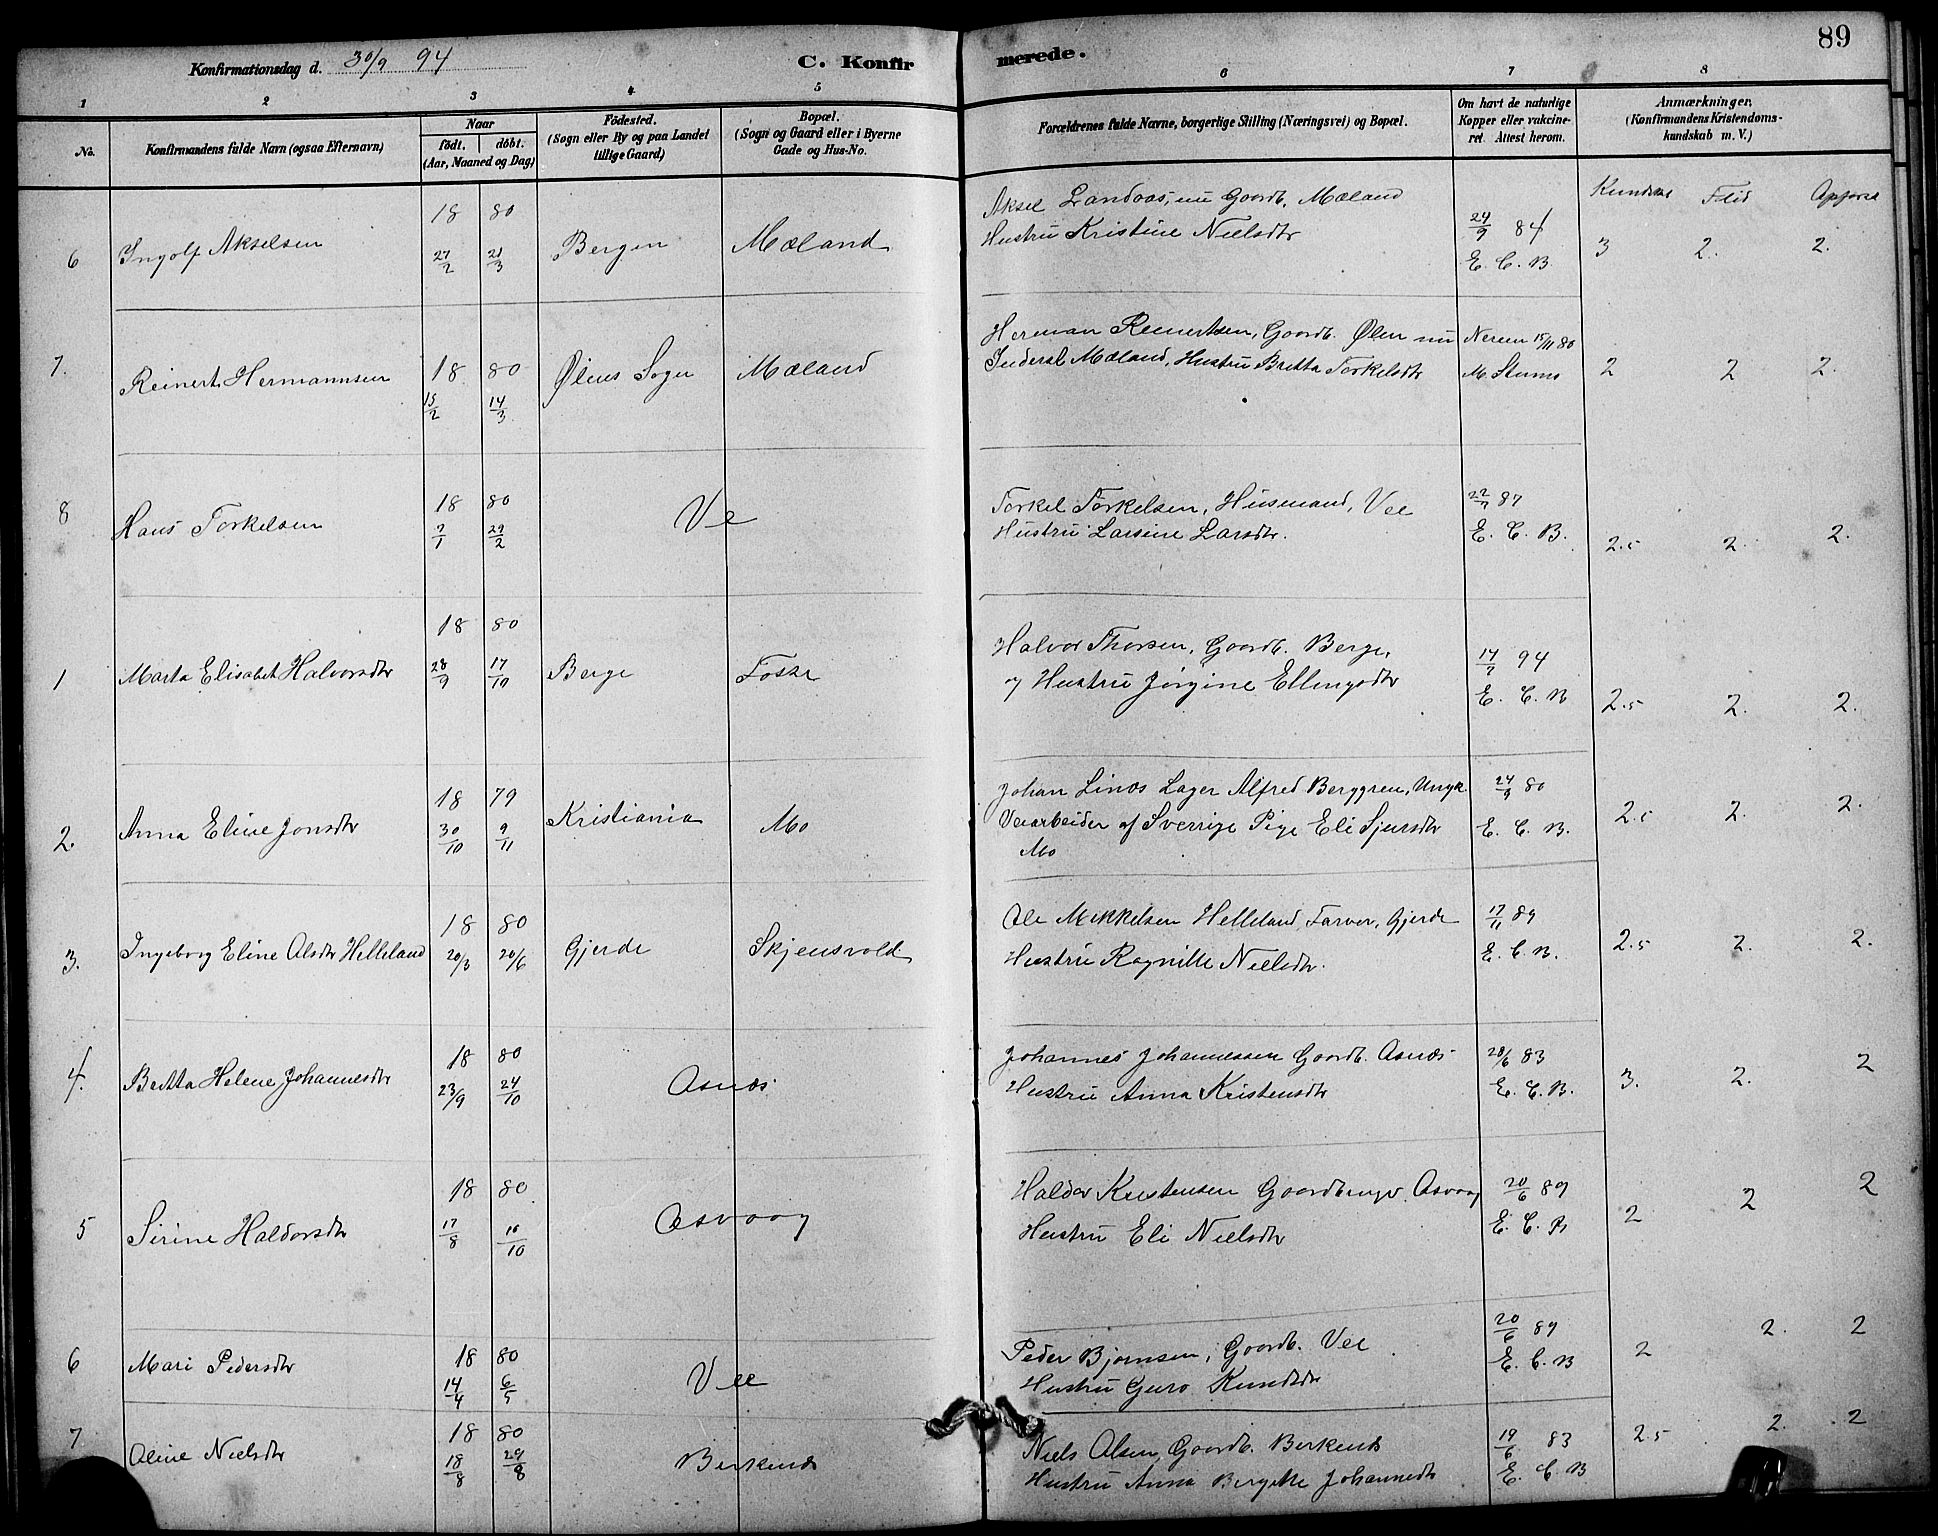 89
Konfirmationsdag d. 30/9 94
C. Konfirmerede.
1 2 3 4 5 6 7 8
No.
Konfirmandens fulde Navn (ogsaa Efternavn)
Naar
födt. döbt.
(Aar, Maaned og Dag)
Födested.
(Sogn eller By og paa Landet
tillige Gaard)
Bopæl.
(Sogn og Gaard eller i Byerne
Gade og Hus-No.
Forældrenes fulde Navne, borgerlige Stilling (Næringsvei) og Bopæl.
Om havt de naturlige
Kopper eller vakcine-
ret. Attest herom.
Anmærkninger,
(Konfirmandens Kristendoms-
kundskab m. V.)
Flid
6 Ingolf Akselsen 18 80 27/2 21/3 Bergen Mæland
Aksel Landaas, nu Gaardb. Mæland
Hustru Kristine Nielsdtr
24/9 84
E. C. B.
3 2. 2.
7. Reinert Hermannsen 18 80 15/2 14/3 Ølens Sogn Mæland
Herman Reinertsen, Gaardb. Ølen nu
Inderst Mæland, Hustru Britta Torkelsdtr
15/11 80
2 2 2.
8 Hans Torkelsen 18 80 29/2 Vee
Torkel Torkelsen, Husmand, Vee
Hustru Larsine Larsdtr.
87
E. C. B.
2.5 2. 2.
1 Marta Elisabet Halvorsdtr 18 80 28/9 17/10 Berge Fosse
Halvor Thorsen, Gaardb. Berge,
og Hustru Jørgine Ellingsdtr
94
E. C. B
2.5 2. 2.
2. Anna Eline Jonsdtr 18 79 30/10 9/11 Kristiania Mo
Johan Linos Lager Alfred Berggren, Ungk.
Veiarbeider af Sverrige Pige Eli Sjursdtr
Mo
24/9 80
E. C. B.
2.5 2. 2.
3. Ingeborg Eline Olsdtr Helleland 18 80 20/3 20/6 Gjerde Skjensvold
Ole Mikkelsen Helleland, Farver, Gjerde
Hustru Ragnille Nielsdtr.
17/11 89
E. C. B.
2.5 2. 2.
4. Britta Helene Johannesdtr 18 80 23/9 24/10 Osnæs
Johannes Johannessen Gaardb. Osnæs
Hustru Anna Kristensdtr
28/6 83
E. C. B.
3. 2. 2
5 Sirine Haldorsdtr 18 80 17/8 10/10 Osvaag
Haldor Kristensen Gaardbruger Osvaag
Hustru Eli Nielsdtr
20/6 89
E. C. B
2 2 2
6 Mari Pedersdtr 18 80 14/4 6/5 Vee
Peder Bjørnsen, Gaardb. Vee
Hustru Guro Knudsdtr
20/6 89
E. C. B
2 2. 2
7 Oline Nielsdtr 18 80 18/8 29/8 Birkenes
Niels Olsen, Gaardb. Birkenes
Hustru Anna Bergitte Johannesdtr
19/6 83
E. C. B
2.5 2. 2